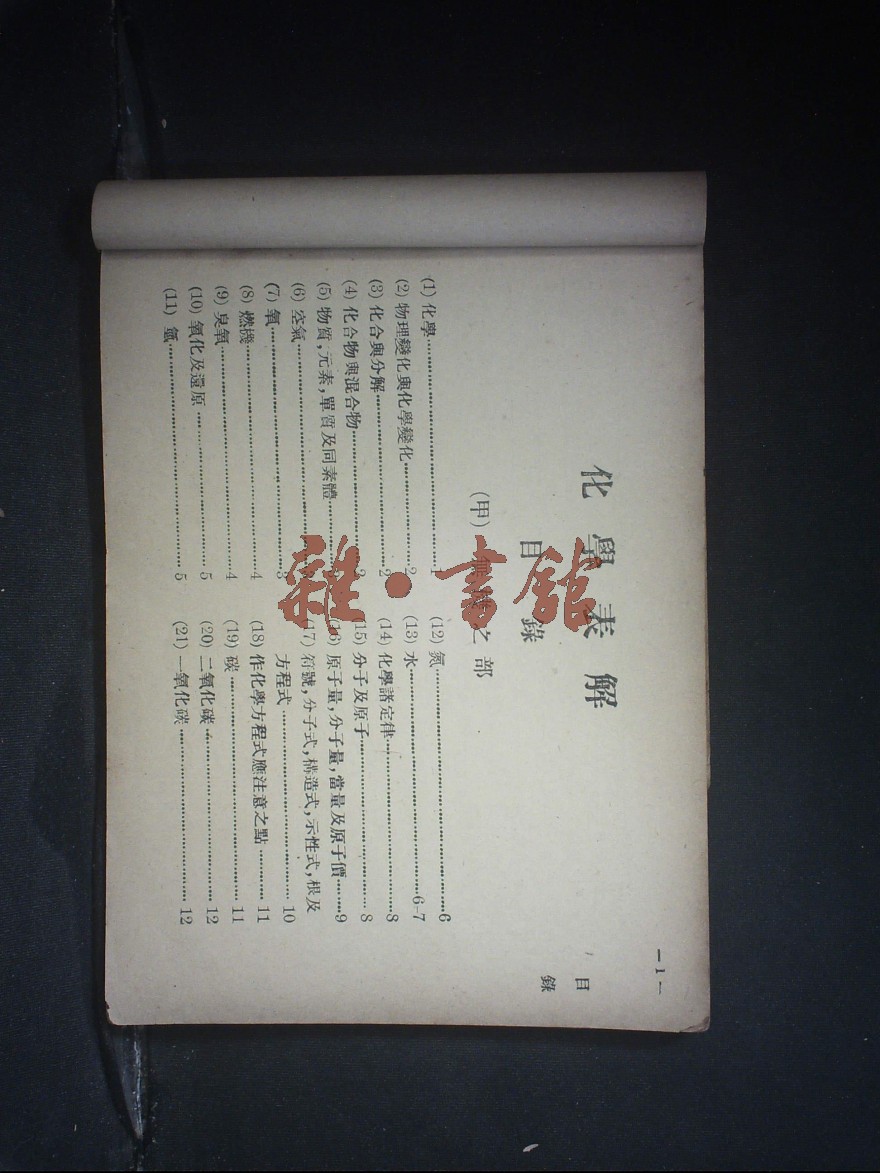 —1—
目錄
化學表解
目錄
(甲) 無機之部
(1) 化學……1
(2) 物理變化與化學變化……2
(3) 化合與分解……2
(4) 化合物與混合物……2
(5) 物質,元素,單質及同素體……
(6) 空氣……
(7) 氧……3
(8) 燃機……4
(9) 臭氧……4
(10) 氧化及還原……5
(11) 氫……5
(12) 氮……6
(13) 水……6-7
(14) 化學諸定律……8
(15) 分子及原子……8
(16) 原子量,分子量,當量及原子價……9
(17) 符號,分子式,構造式,示性式,根及
方程式……10
(18) 作化學方程式應注意之點……11
(19) 碳……11
(20) 二氧化碳……12
(21) 一氧化碳……12
雜·書館